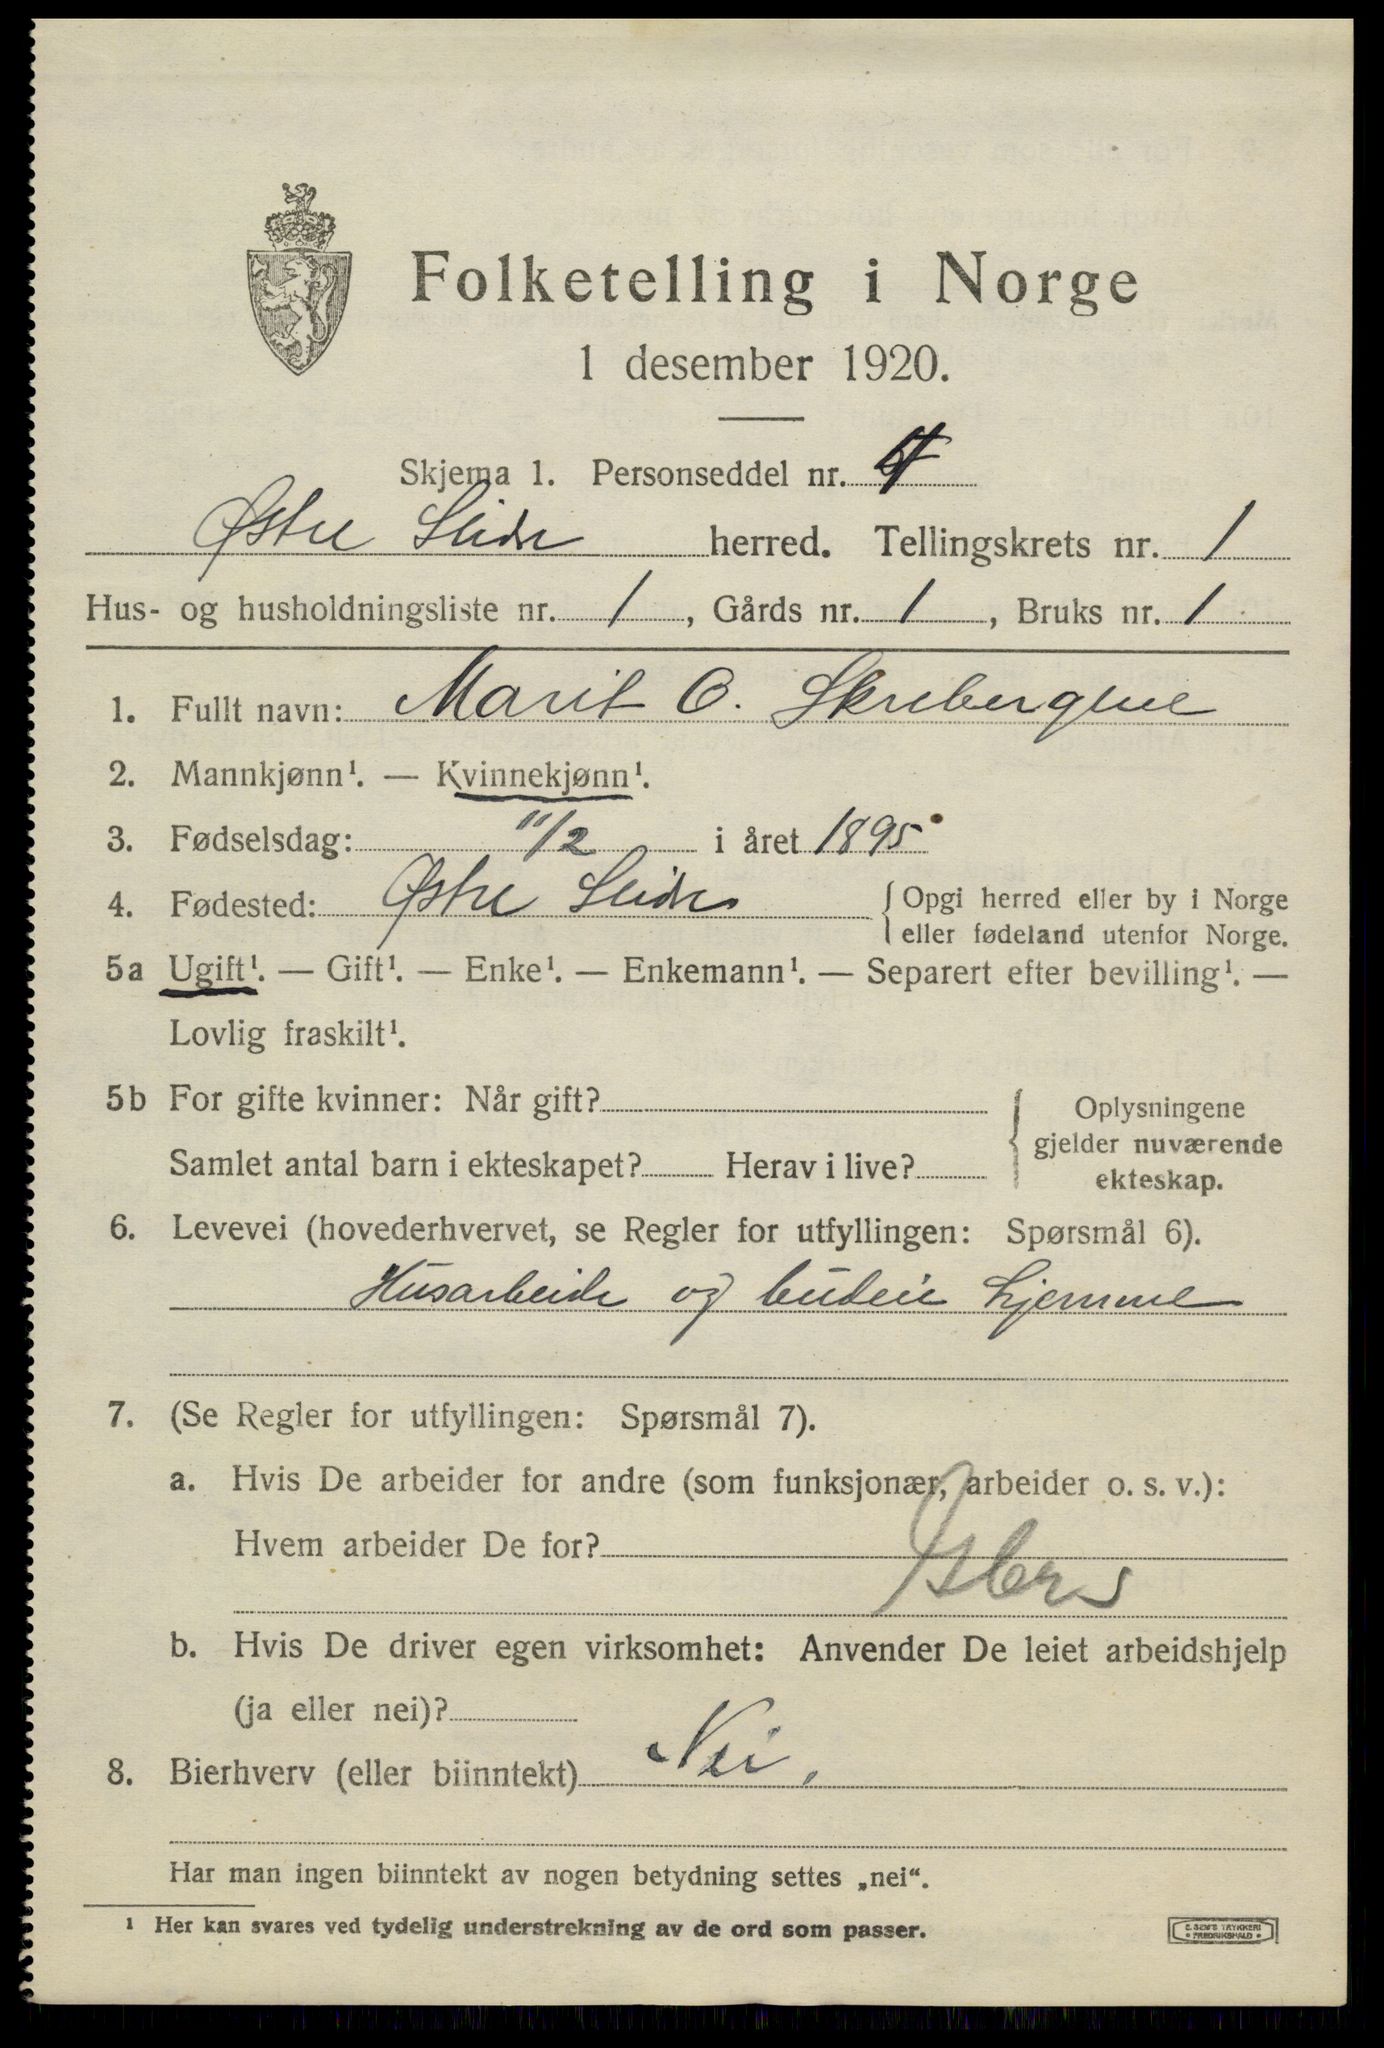 Folketelling i Norge
1 desember 1920.
Skjema 1. Personseddel nr. 4
Østre Slidre herred. Tellingskrets nr. 1
Hus- og husholdningsliste nr. 1, Gårds nr. 1, Bruks nr. 1
1. Fullt navn: Marit O. Skrebergene
2. Mannkjønn¹. — Kvinnekjønn¹.
3. Fødselsdag: 11/2 i året 1895
4. Fødested: Østre Slidre {Opgi herred eller by i Norge
eller fødeland utenfor Norge.
5a Ugift¹. — Gift¹. — Enke¹. — Enkemann¹. — Separert efter bevilling¹. —
Lovlig fraskilt¹.
5b For gifte kvinner: Når gift?
Samlet antal barn i ekteskapet? Herav i live?
Oplysningene
gjelder nuværende
ekteskap.
6. Levevei (hovederhvervet, se Regler for utfyllingen: Spørsmål 6).
Husarbeide og budeie hjemme
7. (Se Regler for utfyllingen: Spørsmål 7).
a. Hvis De arbeider for andre (som funksjonær, arbeider o. s. v.):
Hvem arbeider De for?
b. Hvis De driver egen virksomhet: Anvender De leiet arbeidshjelp
(ja eller nei)?
8. Bierhverv (eller biinntekt) Nei.
Har man ingen biinntekt av nogen betydning settes „nei“.
¹ Her kan svares ved tydelig understrekning av de ord som passer.
E. SEM'S TRYKKERI
• FREDRIKSHALD •